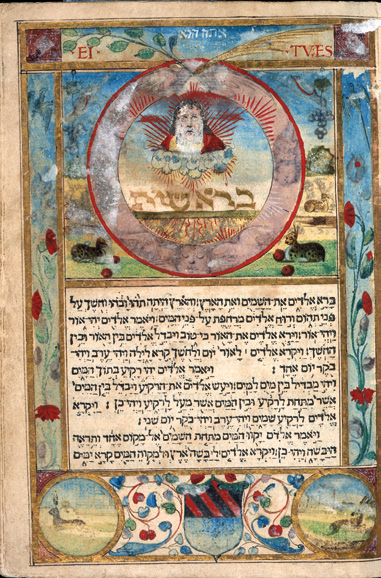 אתה הוא
EI· TV·ES
בראשית
ברא אלדים את השמים ואת הארץ: והארץ היתה תהו ובהו וחשך על
פני תהום ורוח אלדים מרחפת על־פני המים: ויאמר אלדים יהי אור
ויהי אור: וירא אלדים את האור כי טוב ויבדל אלדים בין האור ובין
החשך: ויקרא אלדים לאור יום ולחשך קרא לילה ויהי ערב ויהי
בקר יום אחד: ויאמר אלדים יהי רקיע בתוך המים
ויהי מבדיל בין מים למים: ויעש אלדים את הרקיע ויבדל בין המים
אשר מתחת לרקיע ובין המים אשר מעל לרקיע ויהי כן: ויקרא
אלדים לרקיע שמים ויהי ערב ויהי בקר יום שני:
ויאמר אלדים יקוו המים מתחת השמים אל מקום אחד ותראה
היבשה ויהי כן: ויקרא אלדים ליבשה ארץ ולמקוה המים קרא ימים